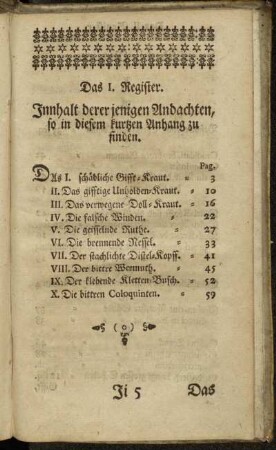 Das I. Register.
Innhalt derer jenigen Andachten,
so in diesem kurtzen Anhang zu
finden.
Pag.
DAs I. schädliche Gifft-Kraut. " 3
II. Das gifftige Unholden-Kraut. " 10
III. Das verwegene Doll-Kraut. " 16
IV. Die falsche Winden. " 22
V. Die geisselnde Ruthe. " 27
VI. Die brennende Nessel. " 33
VII. Der stachlichte Distel-Kopff. " 41
VIII. Der bitter Wermuth. " 45
IX. Der klebende Kletten-Busch. " 52
X. Die bittren Coloquinten. " 59
(o)
Ji 5 Das